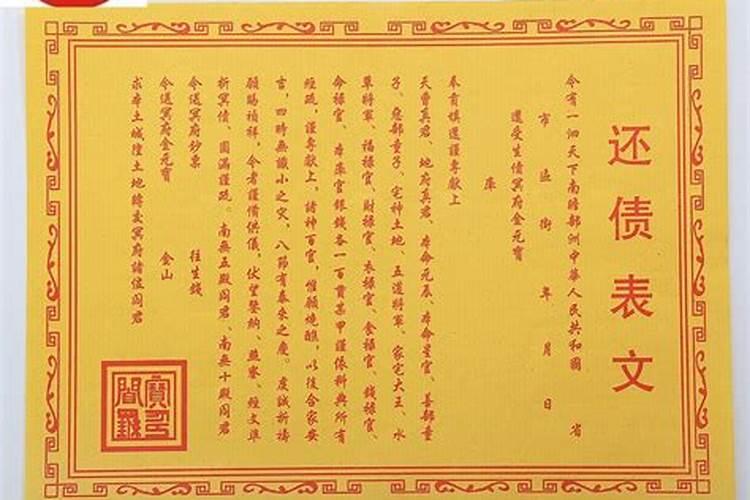 还债表文
今有一泗天下南瞻部洲中華人民共和國 省
市 區 街 年 月 日
還受生債冥府金元寶
庫
奉肯填還謹專献上
天曹真君、地府真君、本命元辰、本命星官、善部童
子、惡部童子、宅神土地、五道將軍、家宅大王、水
草將軍、福祿官、財祿官、衣祿官、食祿官、錢祿官、
命祿官、本庫官銀錢各一百貫某甲謹依科典所有
經疏，謹專献上，諸神百官，惟願燒醮，以後合家安
吉，四時無讖小之灾，八節有泰來之慶。虔誠祈禱
願賜禎祥，今者謹備供儀，伏望鑒納、燕寥、經文準
折冥債、圓滿謹疏。南無五殿阎君、南無十殿阎君
令送冥府鈔票 往生錢
令送冥府金元寶 金山
求本土城隍土地轉交冥府諸位阎君